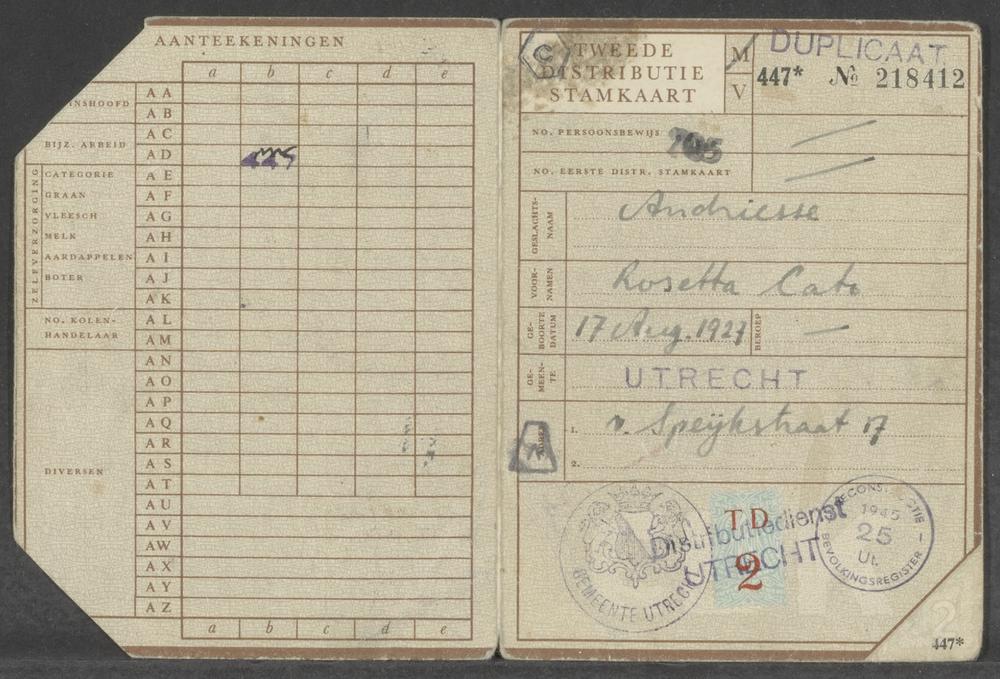 AANTEEKENINGEN
a b c d e
A A
INSHOOFD
A B
A C
BIJZ. ARBEID
A D
445
ZELFVERZORGING
CATEGORIE
A E
GRAAN
A F
VLEESCH
A G
MELK
A H
AARDAPPELEN
A I
BOTER
A J
A K
NO. KOLEN-
HANDELAAR
A L
A M
A N
A O
A P
A Q
A R
A S
DIVERSEN
A T
A U
A V
A W
A X
A Y
A Z
a b c d e
C
TWEEDE
DISTRIBUTIE
STAMKAART
M
V
DUPLICAAT
447* No 218412
NO. PERSOONSBEWIJS
NO. EERSTE DISTR. STAMKAART
GESLACHTS-
NAAM
Andriesse
VOOR-
NAMEN
Rosetta Cato
GE-
BOORTE
DATUM
17 Aug. 1927
BEROEP
GE-
MEEN-
TE
UTRECHT
A
1. v. Speijkstraat 17
2.
GEMEENTE UTRECHT
T D
2
Distributiedienst
UTRECHT
RECONSTRUCTIE
1945
25
Ut.
BEVOLKINGSREGISTER
2
447*